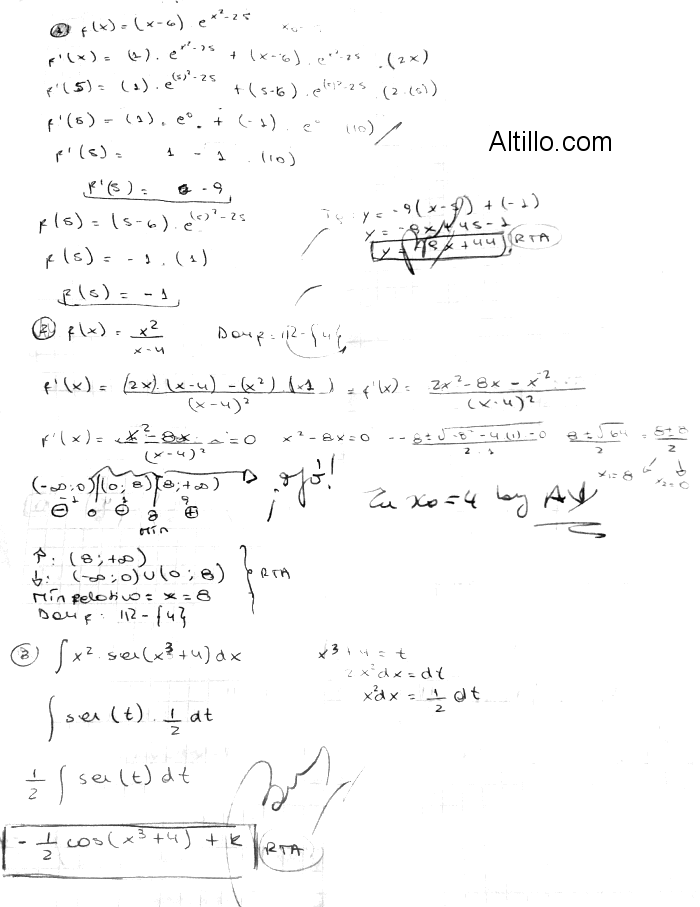 1) f(x) = (x-6) . e^(x²-25)
f'(x) = (1) . e^(x²-25) + (x-6) . e^(x²-25) . (2x)
f'(5) = (1) . e^((5)²-25) + (5-6) . e^((5)²-25) . (2.(5))
Altillo.com
f'(5) = (1) . e⁰ . + (-1) . e⁰ (10)
f'(5) = 1 - 1 . (10)
f'(5) = - 9
f(5) = (5-6) . e^((5)²-25)
f(5) = -1 . (1)
f(5) = -1
y = -9(x-5) + (-1)
y = -9x + 45 - 1
y = -9x + 44 RTA
2) f(x) = x²/(x-4) Dom f = IR - {4}
f'(x) = ((2x) . (x-4) - (x²) . (1))/(x-4)² = f'(x) = (2x² - 8x - x²)/(x-4)²
f'(x) = (x² - 8x)/(x-4)² = 0 x² - 8x = 0 (8 ± √64)/2 = (8 ± 8)/2
x₁ = 8 x₂ = 0
(-∞; 0) (0; 8) (8; +∞) ¡ojo!
-1 1 9
⊖ 0 ⊖ 8 ⊕
Min
En x₀ = 4 hay AV
↑: (8; +∞)
↓: (-∞; 0) ∪ (0; 8) RTA
Min relativo = x = 8
Dom f: IR - {4}
3) ∫ x² . sen(x³+4) dx x³ + 4 = t
2x² dx = dt
x² dx = 1/2 dt
∫ sen(t) . 1/2 dt
1/2 ∫ sen(t) dt
- 1/2 cos(x³+4) + k RTA